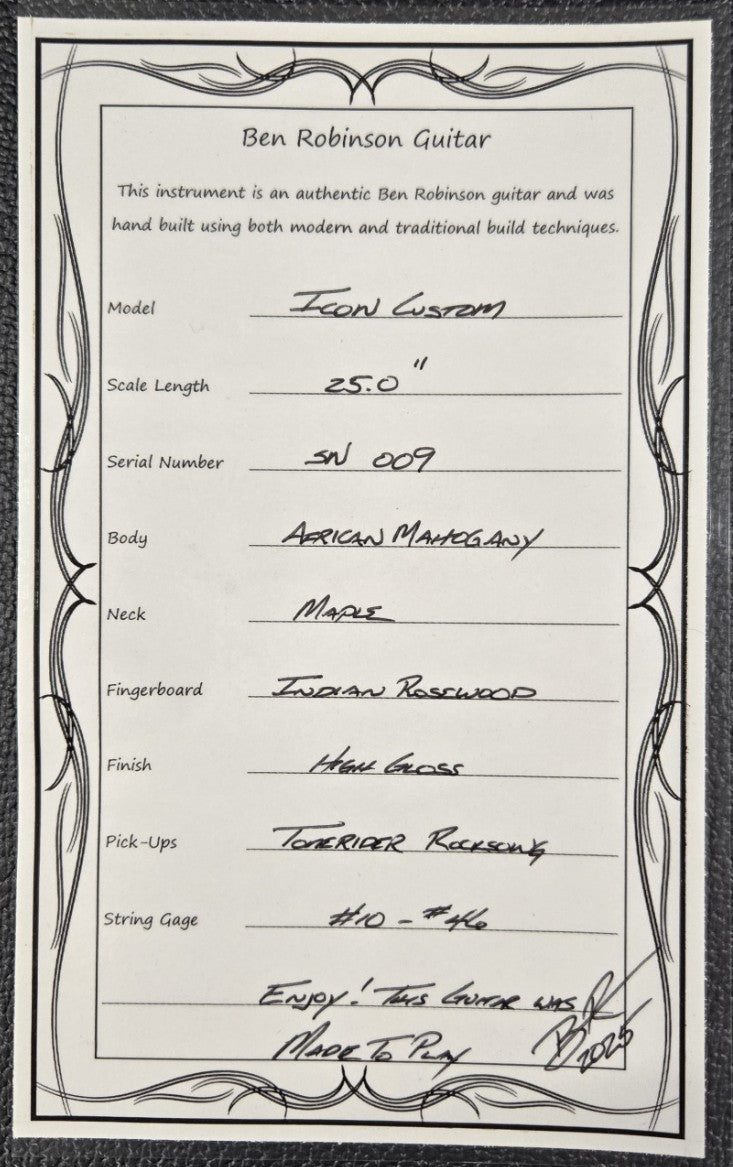 Ben Robinson Guitar
This instrument is an authentic Ben Robinson guitar and was
hand built using both modern and traditional build techniques.
Model ICON CUSTOM
Scale Length 25.0"
Serial Number SN 009
Body AFRICAN MAHOGANY
Neck MAPLE
Fingerboard INDIAN ROSEWOOD
Finish HIGH GLOSS
Pick-Ups TONERIDER ROCKSONG
String Gage #10 - #46
ENJOY! THIS GUITAR WAS
MADE TO PLAY
BR
2025